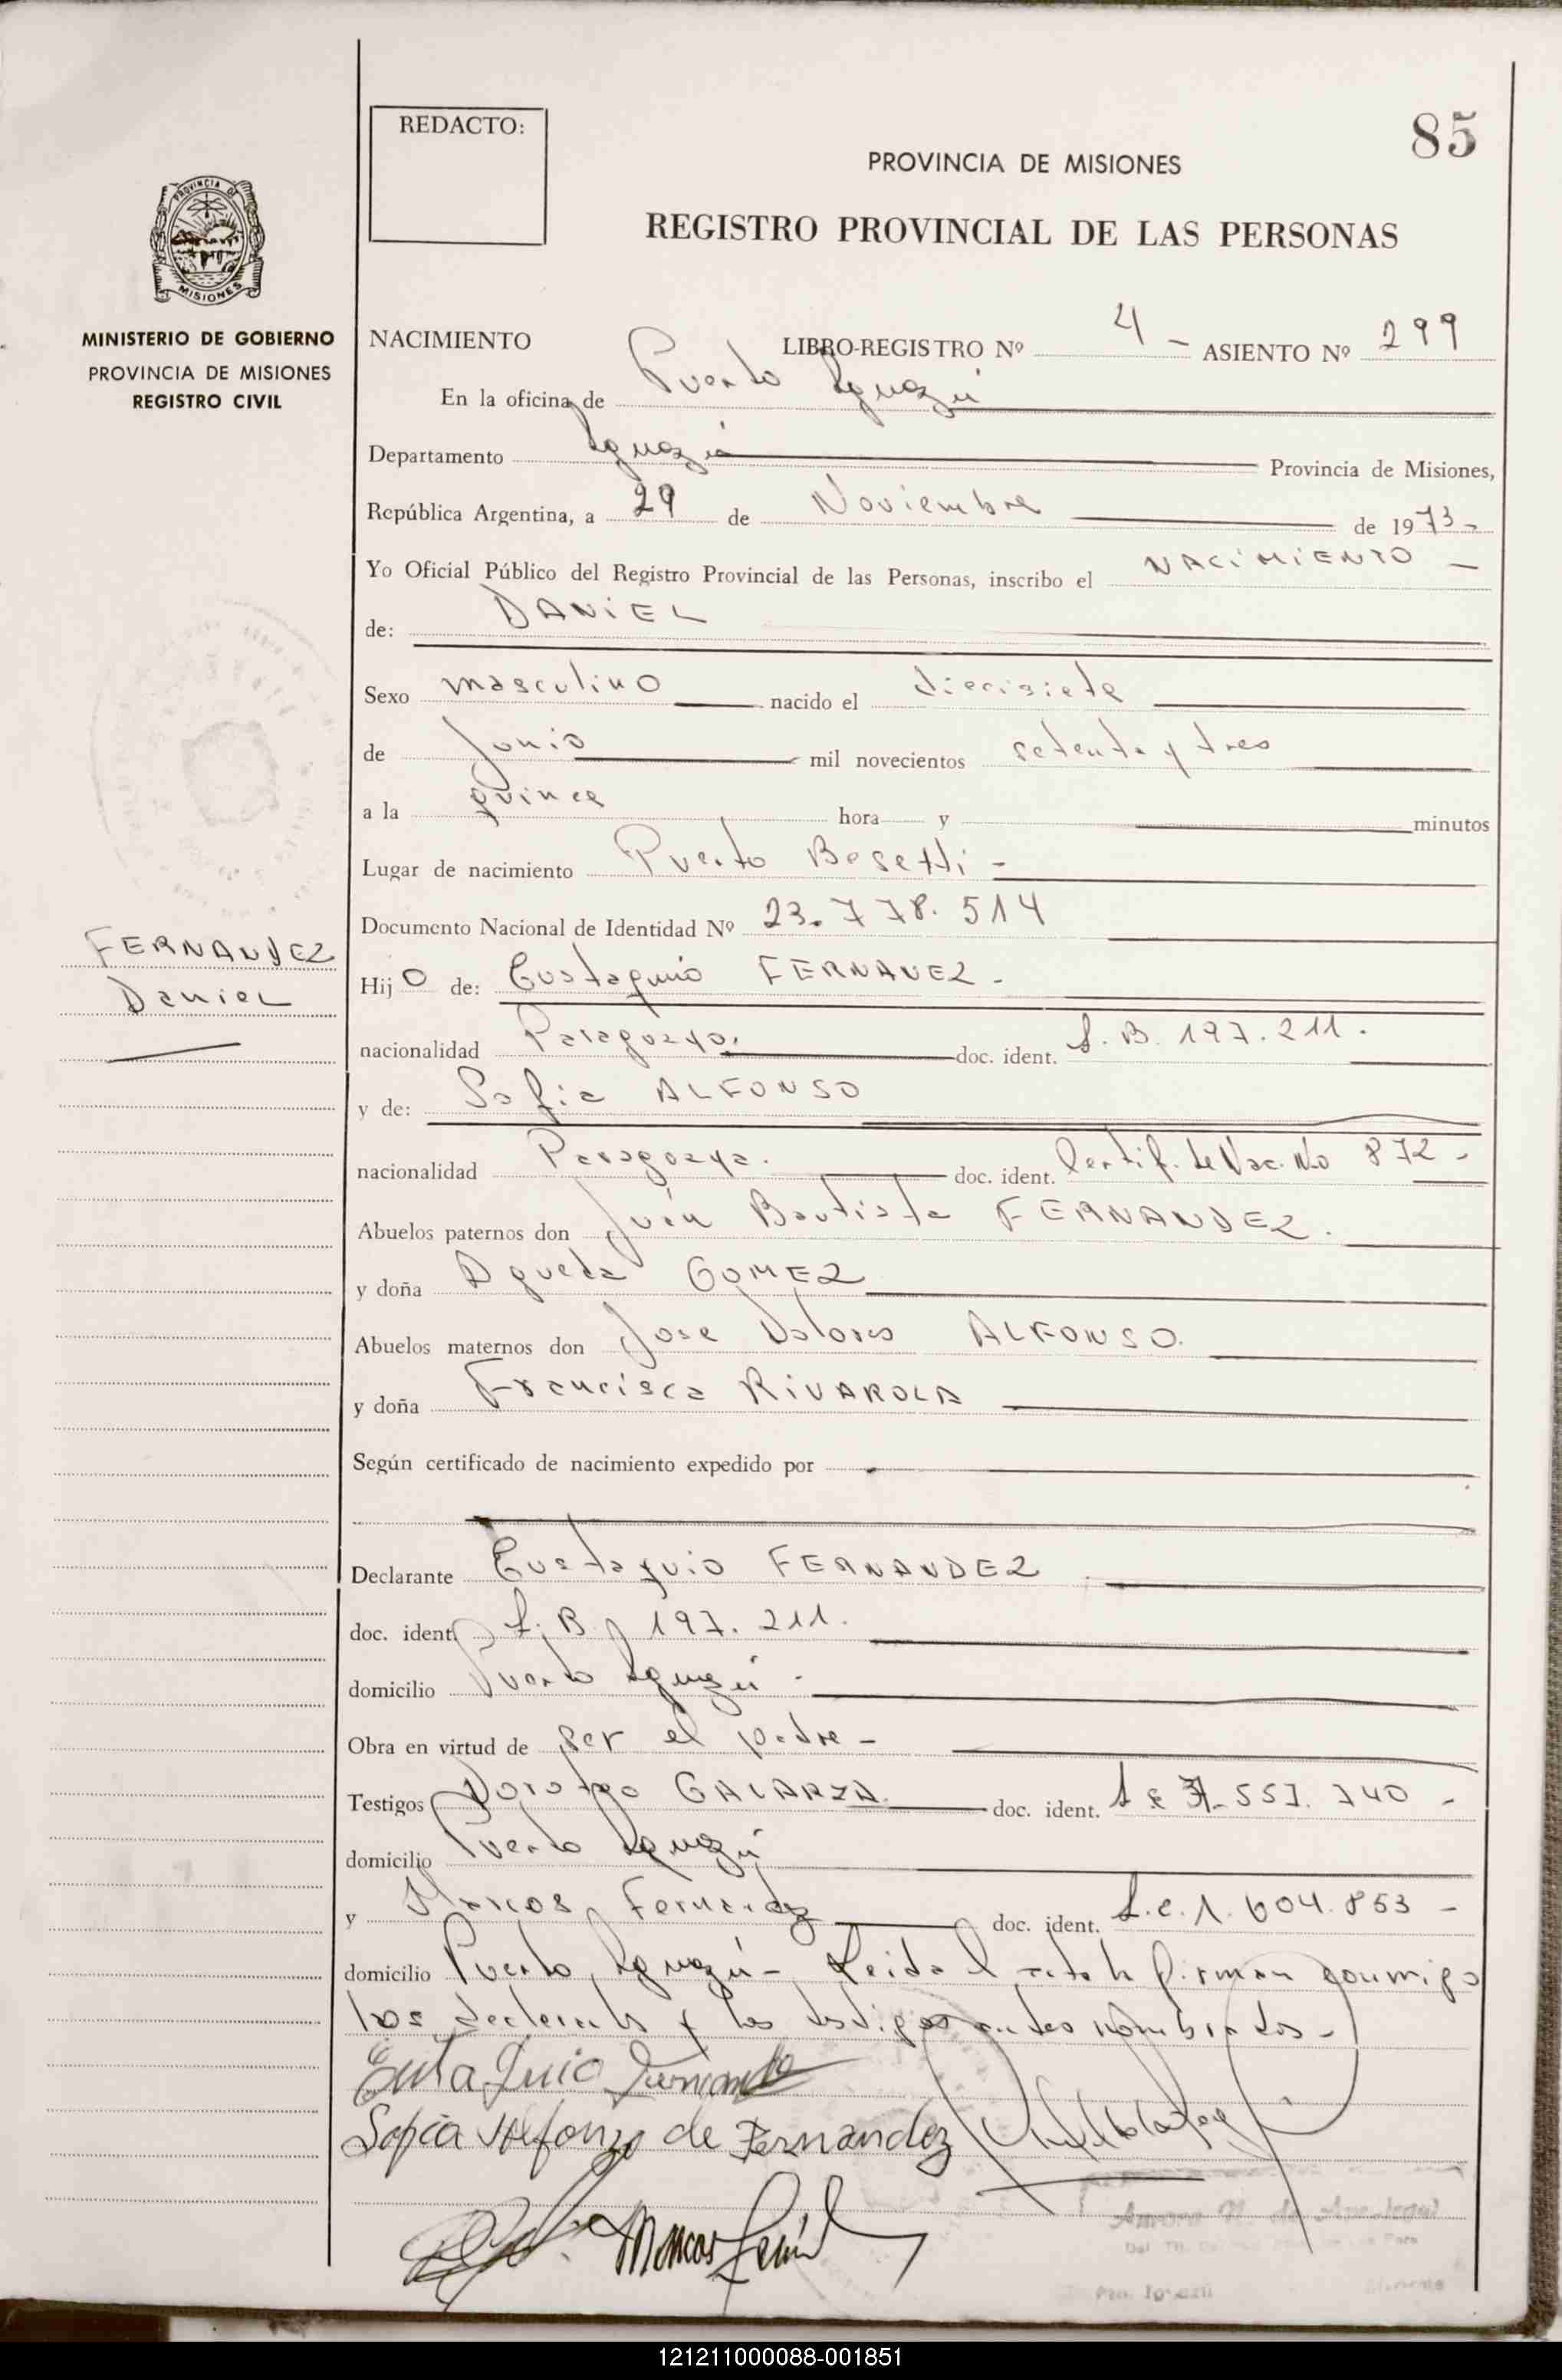 85
REDACTO:
PROVINCIA DE MISIONES
REGISTRO PROVINCIAL DE LAS PERSONAS
PROVINCIA DE
MISIONES
MINISTERIO DE GOBIERNO
PROVINCIA DE MISIONES
REGISTRO CIVIL
NACIMIENTO LIBRO-REGISTRO Nº 4 - ASIENTO Nº 299
En la oficina de Puerto Iguazú
Departamento Iguazú Provincia de Misiones,
República Argentina, a 29 de Noviembre de 1973-
Yo Oficial Público del Registro Provincial de las Personas, inscribo el NACIMIENTO -
de: DANIEL
Sexo masculino nacido el diecisiete
de Junio mil novecientos setenta y tres
a la quince hora y minutos
Lugar de nacimiento Puerto Bosetti -
Documento Nacional de Identidad Nº 23.778.514
FERNANDEZ
Daniel
Hijo de: Eustaquio FERNANEZ -
nacionalidad Paraguayo. doc. ident. L.B. 197.211.
y de: Sofia ALFONSO
nacionalidad Paraguaya. doc. ident. Certif. de Nac. No 872 -
Abuelos paternos don Juan Bautista FERNANDEZ.
y doña Agueda GOMEZ
Abuelos maternos don Jose Dolores ALFONSO.
y doña Francisca RIVAROLA
Según certificado de nacimiento expedido por
Declarante Eustaquio FERNANDEZ
doc. ident. L.B. 197.211.
domicilio Puerto Iguazú -
Obra en virtud de ser el padre -
Testigos Doroteo GALARZA doc. ident. 557.740 -
domicilio Puerto Iguazú
y Marcos Fernandez doc. ident. L.E. 1.604.853 -
domicilio Puerto Iguazú - Leida el acta la firman conmigo
los declarants y los testigos antes nombrados -
Eutaquio Fernandez
Sofia Alefonzo de Fernandez
Marcos
121211000088-001851